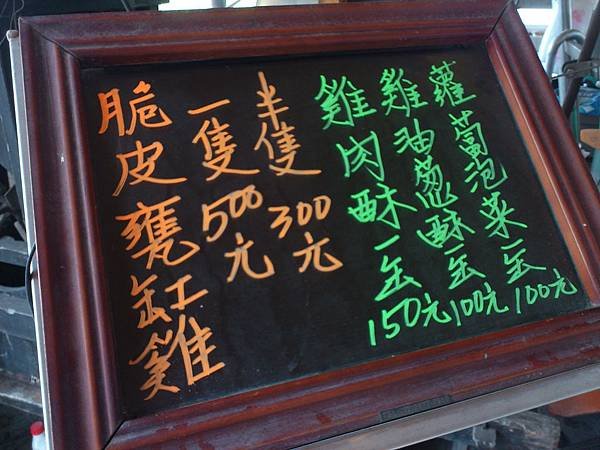 脆皮甕缸雞
一隻500元
半隻300元
雞肉酥一缶150元
雞油葱酥一缶100元
蘿蔔泡菜一缶100元